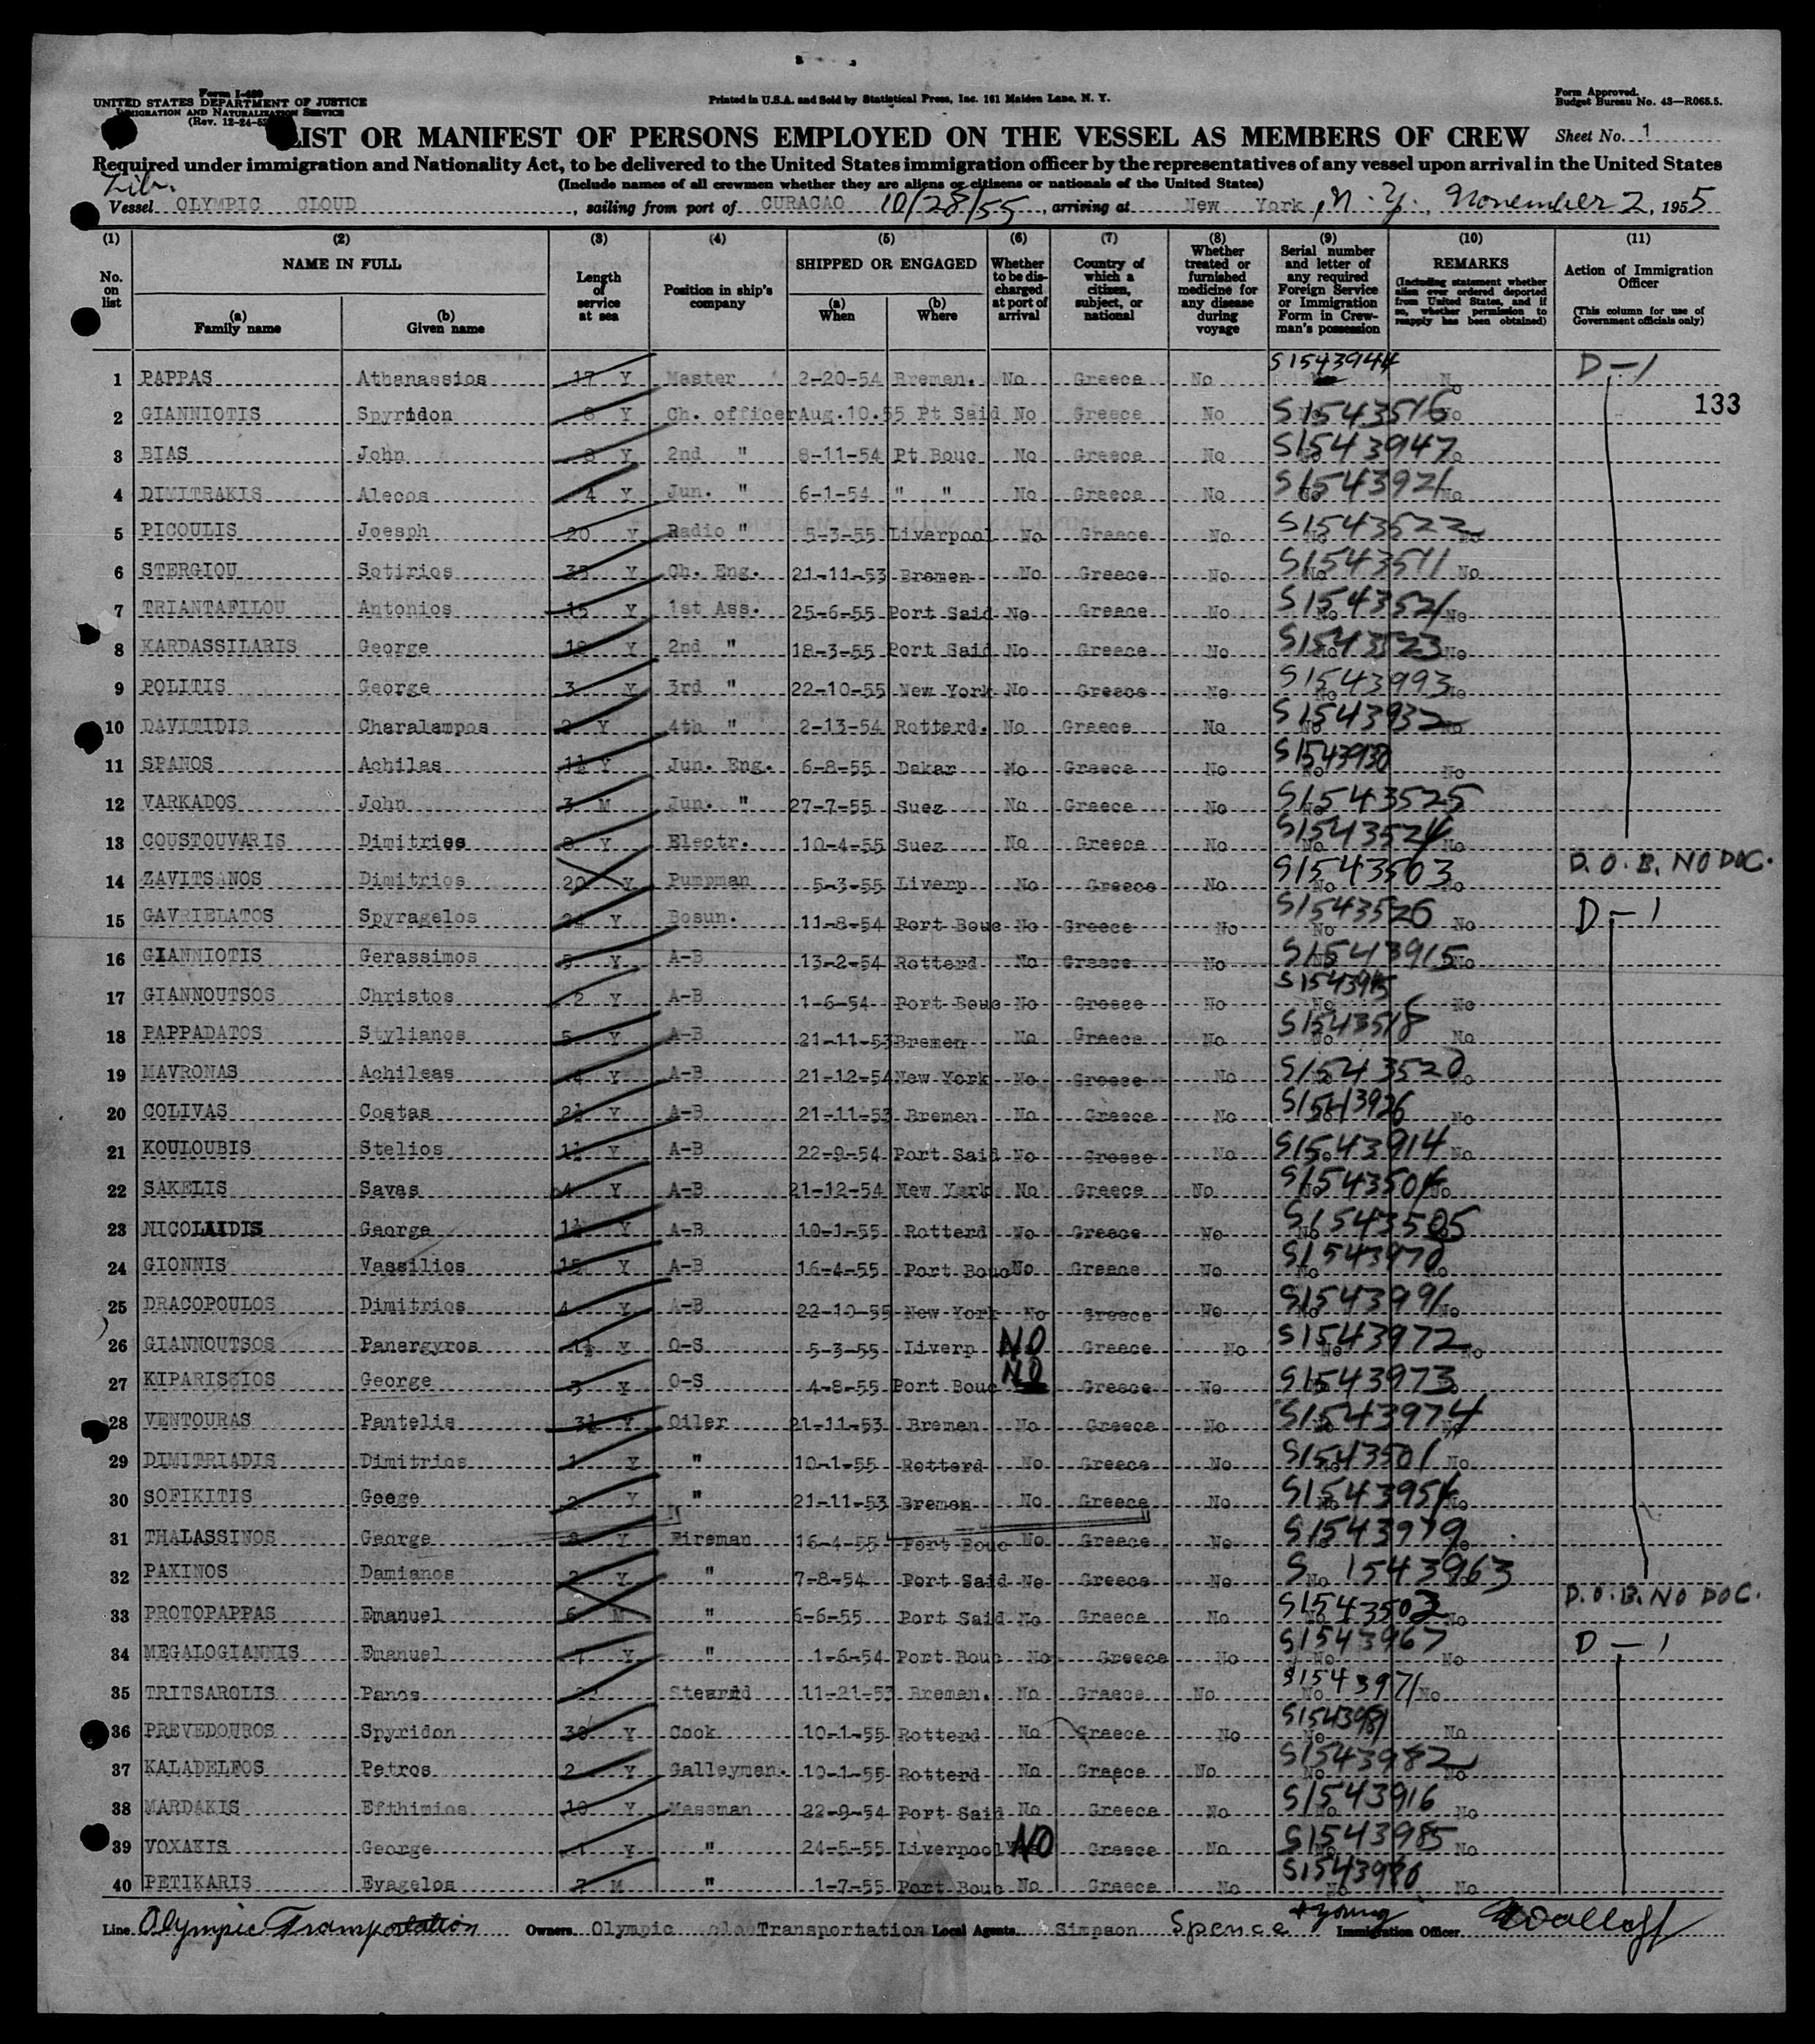 Form I-480
UNITED STATES DEPARTMENT OF JUSTICE
IMMIGRATION AND NATURALIZATION SERVICE
(Rev. 12-24-52)
Printed in U.S.A. and Sold by Statistical Press, Inc. 161 Maiden Lane, N. Y.
Form Approved.
Budget Bureau No. 43—R065.5.
LIST OR MANIFEST OF PERSONS EMPLOYED ON THE VESSEL AS MEMBERS OF CREW
Sheet No. 1
Required under immigration and Nationality Act, to be delivered to the United States immigration officer by the representatives of any vessel upon arrival in the United States
(Include names of all crewmen whether they are aliens or citizens or nationals of the United States)
Lib.
Vessel OLYMPIC CLOUD, sailing from port of CURACAO 10/28/55, arriving at New York, N.Y., November 2, 1955
(1) No. on list
(2) NAME IN FULL (a) Family name (b) Given name
(3) Length of service at sea
(4) Position in ship's company
(5) SHIPPED OR ENGAGED (a) When (b) Where
(6) Whether to be discharged at port of arrival
(7) Country of which a citizen, subject, or national
(8) Whether treated or furnished medicine for any disease during voyage
(9) Serial number and letter of any required Foreign Service or Immigration Form in Crewman's possession
(10) REMARKS (Including statement whether alien ever ordered deported from United States, and if so, whether permission to reapply has been obtained)
(11) Action of Immigration Officer (This column for use of Government officials only)
1 PAPPAS Athanassios 17 Y Master 2-20-54 Bremen. No Greece No S1543944 No D-1
133
2 GIANNIOTIS Spyridon 8 Y Ch. officer Aug.10.55 Pt Said No Greece No S1543516 No
3 BIAS John 8 Y 2nd " 8-11-54 Pt Bouc No Greece No S1543947 No
4 DIMITRAKIS Alecos 4 Y Jun. " 6-1-54 " " No Greece No S1543921 No
5 PICOULIS Joesph 20 Y Radio " 5-3-55 Liverpool No Greece No S1543522 No
6 STERGIOU Sotirios 35 Y Ch. Eng. 21-11-53 Bremen No Greece No S1543511 No
7 TRIANTAFILOU Antonios 15 Y 1st Ass. 25-6-55 Port Said No Greece No S1543521 No
8 KARDASSILARIS George Y 2nd " 18-3-55 Port Said No Greece No S1543523 No
9 POLITIS George 3 Y 3rd " 22-10-55 New York No Greece No S1543993 No
10 DAVITIDIS Charalampos 2 Y 4th " 2-13-54 Rotterd. No Greece No S1543932 No
11 SPANOS Achilas 1½ Y Jun. Eng. 6-8-55 Dakar No Greece No S1543930 No
12 VARKADOS John 3 M Jun. " 27-7-55 Suez No Greece No S1543525
13 COUSTOUVARIS Dimitries 8 Y Electr. 10-4-55 Suez No Greece No S1543524 No
14 ZAVITSANOS Dimitrios 20 Y Pumpman 5-3-55 Liverp No Greece No S1543503 No D.O.B. NO DOC.
15 GAVRIELATOS Spyragelos 24 Y Bosun. 11-8-54 Port Bouc No Greece No S1543526 No D-1
16 GIANNIOTIS Gerassimos 5 Y A-B 13-2-54 Rotterd No Greece No S1543915 No
17 GIANNOUTSOS Christos 2 Y A-B 1-6-54 Port Bouc No Greece No No
18 PAPPADATOS Stylianos 5 Y A-B 21-11-53 Bremen No Greece No S1543518 No
19 MAVRONAS Achileas 4 Y A-B 21-12-54 New York No Greece No S1543520 No
20 COLIVAS Costas 2½ Y A-B 21-11-53 Bremen No Greece No S1543926 No
21 KOULOUBIS Stelios 1½ Y A-B 22-9-54 Port Said No Greece No S1543914 No
22 SAKELIS Savas 4 Y A-B 21-12-54 New York No Greece No S1543504 No
23 NICOLAIDIS George 1½ Y A-B 10-1-55 Rotterd No Greece No S1543505
24 GIONNIS Vassilios 15 Y A-B 16-4-55 Port Bouc No Greece No S1543970 No
25 DRACOPOULOS Dimitrios 4 Y A-B 22-10-55 New York No Greece No S1543991 No
26 GIANNOUTSOS Panargyros 1½ Y O-S 5-3-55 Liverp NO Greece No S1543972 No
27 KIPARISSIOS George 3 Y O-S 4-8-55 Port Bouc NO Greece No S1543973
28 VENTOURAS Pantelis 3½ Y Oiler 21-11-53 Bremen No Greece No S1543974 No
29 DIMITRIADIS Dimitrios 1 Y " 10-1-55 Rotterd No Greece No S1543501 No
30 SOFIKITIS Geoege 2 Y " 21-11-53 Bremen No Greece No S1543954 No
31 THALASSINOS George 8 Y Fireman 16-4-55 Port Bouc No Greece No S1543979 No
32 PAXINOS Damianos 2 Y " 7-8-54 Port Said No Greece No S 1543963
33 PROTOPAPPAS Emanuel 6 M " 6-6-55 Port Said No Greece No S1543502 No D.O.B. NO DOC.
34 MEGALOGIANNIS Emanuel 7 Y " 1-6-54 Port Bouc No Greece No S1543967 No D-1
35 TRITSAROLIS Panos Steward 11-21-53 Bremen. No Greece No S1543971 No
36 PREVEDOUROS Spyridon 30 Y Cook 10-1-55 Rotterd No Greece No S1543981 No
37 KALADELFOS Petros 2 Y Galleyman. 10-1-55 Rotterd No Greece No S1543982 No
38 MARDAKIS Efthimios 10 Y Messman 22-9-54 Port Said No Greece No S1543916 No
39 VOXAKIS George 1 Y " 24-5-55 Liverpool NO Greece No S1543985 No
40 PETIKARIS Evagelos 7 M " 1-7-55 Port Bouc No Greece No No
Line Olympic Transportation Owners Olympic Transportation Local Agents Simpson Spence + Young Immigration Officer